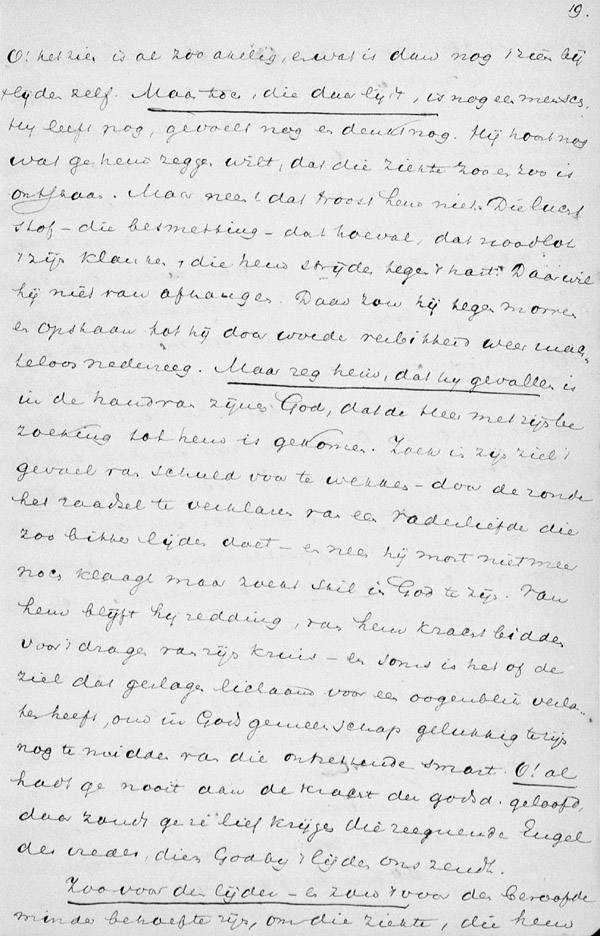 19.
O! het zien is al zoo akelig, en wat is dan nog 't zien bij
't lijden zelf. Maar toch, die daar lijdt, is nog een mensch.
Hij leeft nog, gevoelt nog en denkt nog. Hij hoort nog
wat ge hem zeggen wilt, dat die ziekte zoo en zoo is
ontstaan. Maar neen! dat troost hem niet. Die lucht
stof – die besmetting – dat toeval, dat noodlot
't zijn klanken, die hem strijden tegen 't hart. Daar wil
hij niet van afhangen. Daar zou hij tegen morren
en opstaan tot hij door woede verbitterd weer mach-
teloos nederzeeg. Maar zeg hem, dat hij gevallen is
in de hand van zijnen God, dat de Heer met zijn be
zoeking tot hem is gekomen. Zoek in zijn ziel 't
gevoel van schuld voor te wekken – door de zonde
het raadsel te verklaren van een Vaderliefde die
zoo bitter lijden doet – en neen hij mort niet meer
noch klaagt maar zoekt stil in God te zijn. Van
hem blijft hij redding, van hem kracht bidden
voor 't dragen van zijn kruis – en soms is het of de
ziel dat geslagen lichaam voor een oogenblik verla-
ten heeft, om in Gods gemeenschap gelukkig te zijn
nog te midden van die ontzettende smart. O! al
hadt ge nooit aan de kracht der godsd. geloofd,
daar zoudt ge ze lief krijgen die zegenende Engel
des vredes, dien God bij 't lijden ons zendt.
Zoo voor den lijder – en zou 't voor den beroofde
minder behoefte zijn, om die ziekte, die hem